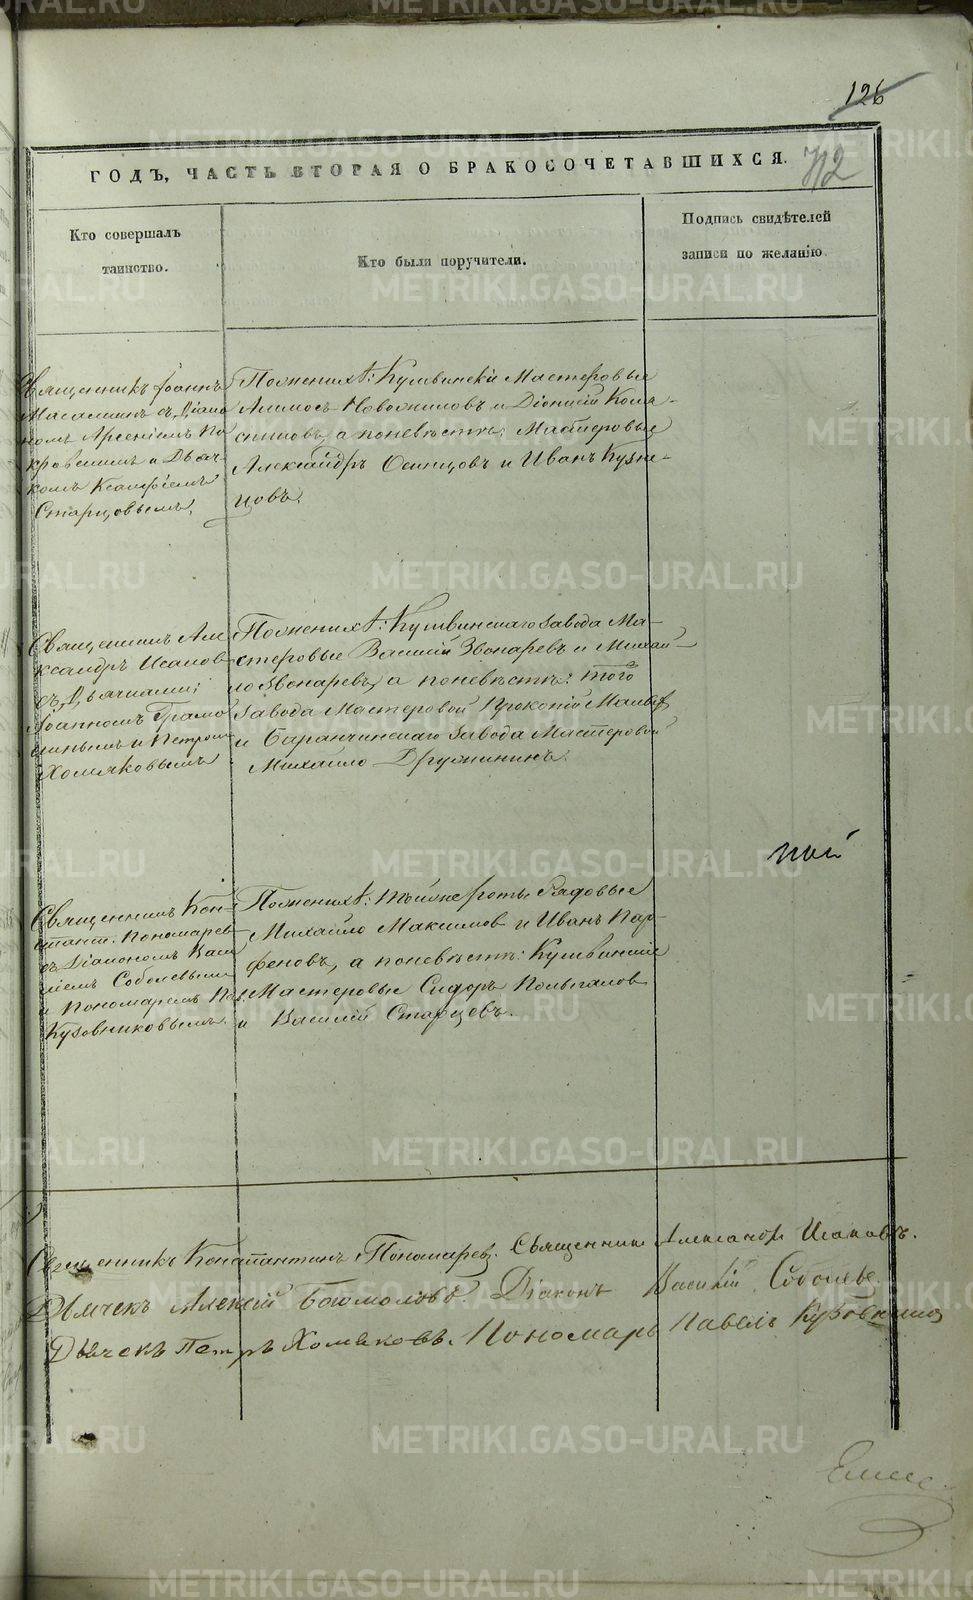 126
ГОДЪ, ЧАСТЬ ВТОРАЯ О БРАКОСОЧЕТАВШИХСЯ.
Кто совершалъ
таинство.
Кто были поручители.
Подпись свидѣтелей
записи по желанію.
Священникъ Іоаннъ
съ Діако
номъ Арсеніемъ По
кровскимъ и Дьяч
комъ
Старцовымъ.
По женихѣ: Кушвинскіе Мастеровые
и Діонисій Коля-
а по невѣстѣ: Мастеровые
Александръ Осинцовъ и Иванъ Кузне-
цовъ.
Священникъ Але
ксандръ Исаков
съ Дьячками;
Іоанномъ
и Петром
Хомяковымъ
По женихѣ: Кушвинскаго завода Ма-
стеровые Василій Звонаревъ и Михай-
ло Звонаревъ, а по невѣстѣ: того
завода Мастеровой Прокопій
и Баранчинскаго завода Мастеровой
Михайло Дружининъ.
Священникъ Кон-
стант. Пономарев
съ Діакономъ Васи
ліемъ Соболевым
и Пономаремъ Пав.
Кузовниковымъ.
По женихѣ: той же роты Рядовые
Михайло Максимов и Иванъ Пар-
феновъ, а по невѣстѣ: Кушвинскіе
Мастеровые Сидоръ
и Василій Старцовъ.
ной
Священникъ Константинъ Пономаревъ. Священник Александръ Исаковъ.
Дьячекъ Алексій Богомоловъ. Діаконъ Василій Соболевъ.
Дьячекъ Петръ Хомяковъ. Пономарь Павелъ Кузовников
METRIKI.GASO-URAL.RU